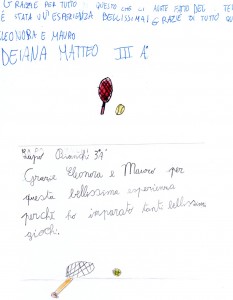 GRAZIE PER TUTTO QUESTO CHE CI AVETE FATTO DEL TE
È STATA UN'ESPERIENZA BELLISSIMA! GRAZIE DI TUTTO QU
ELEONORA E MAURO
DEIANA MATTEO III A
3ªA
Grazie Eleonora e Mauro per
questa bellissima esperienza
perché ho imparato tanti bellissimi
giochi.